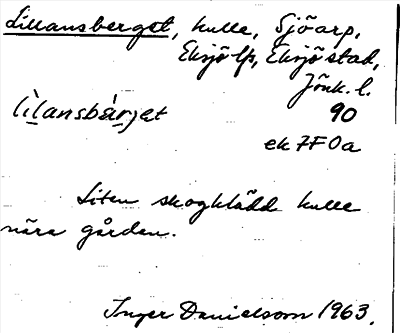 Lillansberget, kulle, Sjöarp,
Eksjö lfs, Eksjö stad,
Jönk. l.
lìlansbárjet 90
ek 7F0a
Liten skogklädd kulle
nära gården.
Inger Danielsson 1963.